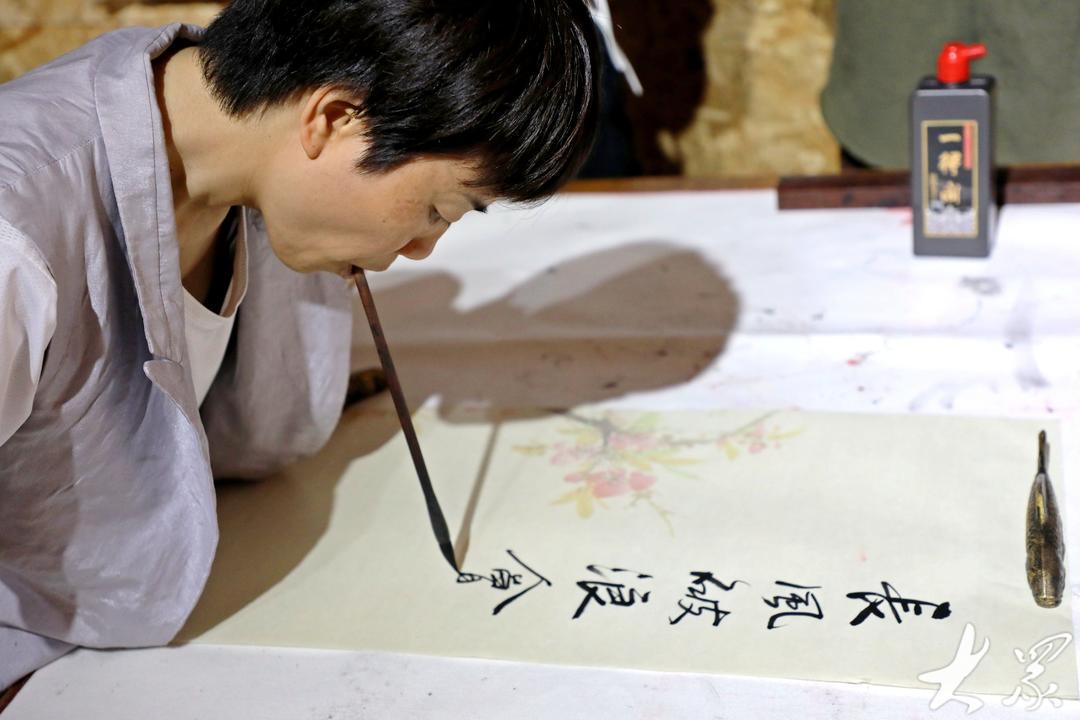 長風破浪會
一得阁
大眾